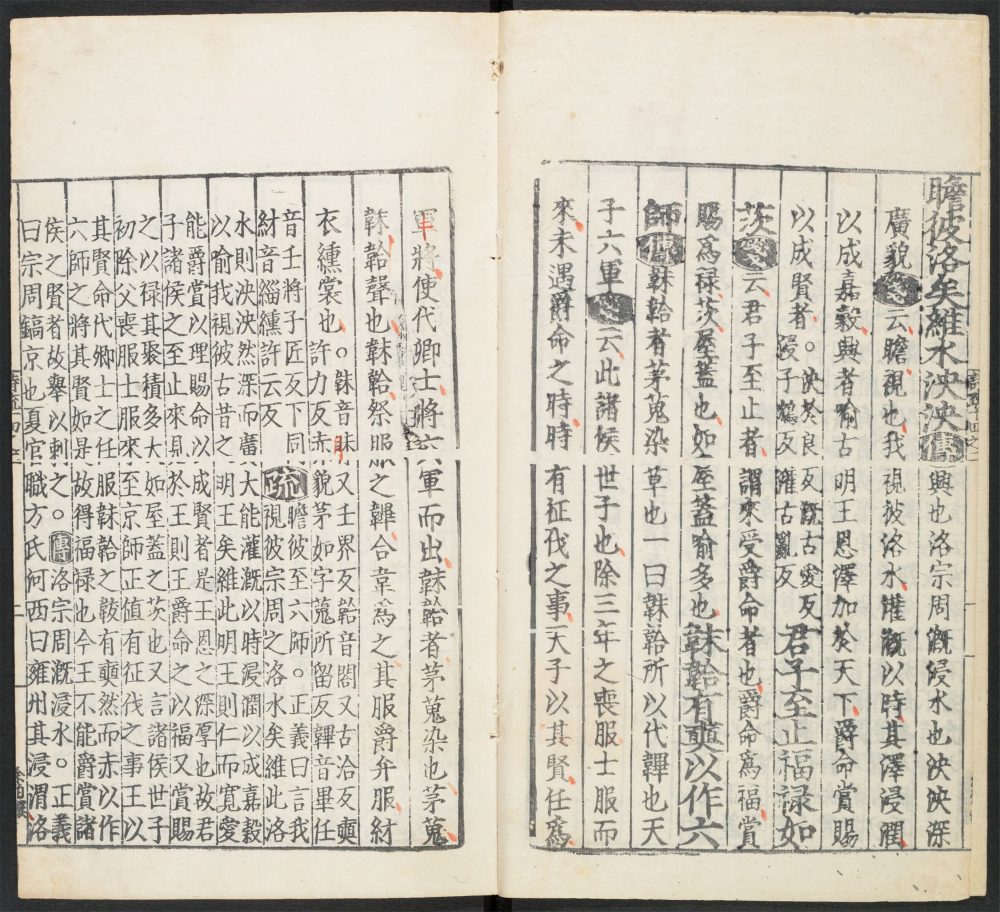 瞻彼洛矣維水泱泱傳興也洛宗周溉浸水也泱泱深
廣貌箋云瞻視也我視彼洛水灌溉以時其澤浸潤
以成嘉穀興者喻古明王恩澤加於天下爵命賞賜
以成賢者。泱於良反溉古愛反浸子鴆反灌古亂反君子至止福祿如
茨箋云君子至止者謂來受爵命者也爵命為福賞
賜為祿茨屋蓋也如屋蓋喻多也韎韐有奭以作六
師傳韎韐者茅蒐染草也一曰韎韐所以代韠也天
子六軍箋云此諸侯世子也除三年之喪服士服而
來未遇爵命之時時有征伐之事天子以其賢任為
軍將使代卿士將六軍而出韎韐者茅蒐染也茅蒐
韎韐聲也韎韐祭服之韠合韋為之其服爵弁服紂
衣纁裳也。韎音昧又壬界反韐音閤又古洽反奭
許力反赤貌茅如字蒐所留反韠音畢任
音壬將子匠反下同
財音緇纁許云反
疏瞻彼至六師。正義曰言我
視彼宗周之洛水矣維此洛
水則泱泱然深而廣大能灌溉以時浸潤以成嘉穀
以喻我視彼古昔之明王矣維此明王則仁而寬愛
能爵賞以理賜命以成賢者是王恩之深厚也故君
子諸侯之至止來見於王則王爵命之以福又賞賜
之以祿其聚積多大如屋蓋之茨也又言諸侯世子
初除父喪服士服來至京師正值有征伐之事王以
其賢命代卿士之任服韎韐之韍有奭然而赤以作
六師之將其賢如是故得福祿也今王不能爵賞諸
侯之賢者故舉以刺之。傳洛宗周溉浸水。正義
曰宗周鎬京也夏官職方氏河西曰雍州其浸渭洛